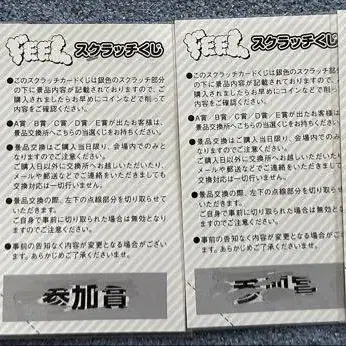 FEEL スクラッチくじ
●このスクラッチカードくじは銀色のスクラッチ部分
の下に景品内容が記載されておりますので、ご
購入されましたらお早めにコインなどで削って
内容をご確認ください。
●A賞/B賞/C賞/D賞/E賞が出たお客様は、
景品交換所へこちらの当選くじをお持ちください。
●景品交換はご購入当日限り、会場内でのみと
なりますのでご注意ください。
ご購入日以外に交換所へお越しいただいたり、
メールや郵送などでご連絡をいただきましても
交換対応は一切行いません。
●景品交換の際、左下の点線部分を切り取らせて
いただきます。
ご自身で事前に切り取られた場合は無効となり
ますのでご注意ください。
●事前の告知なく内容が変更となる場合がござい
ます。あらかじめご了承くださいませ。
参加賞
FEEL スクラッチくじ
●このスクラッチカードくじは銀色のスクラッチ部分
の下に景品内容が記載されておりますので、
購入されましたらお早めにコインなどで削っ
内容をご確認ください。
●A賞/B賞/C賞/D賞/E賞が出たお客様
景品交換所へこちらの当選くじをお持ちくださ
●景品交換はご購入当日限り、会場内での
なりますのでご注意ください。
ご購入日以外に交換所へお越しいただいたり
メールや郵送などでご連絡をいただきまして
交換対応は一切行いません。
●景品交換の際、左下の点線部分を切り取らせ
いただきます。
ご自身で事前に切り取られた場合は無効と
ますのでご注意ください。
●事前の告知なく内容が変更となる場合がござ
ます。あらかじめご了承くださいませ。